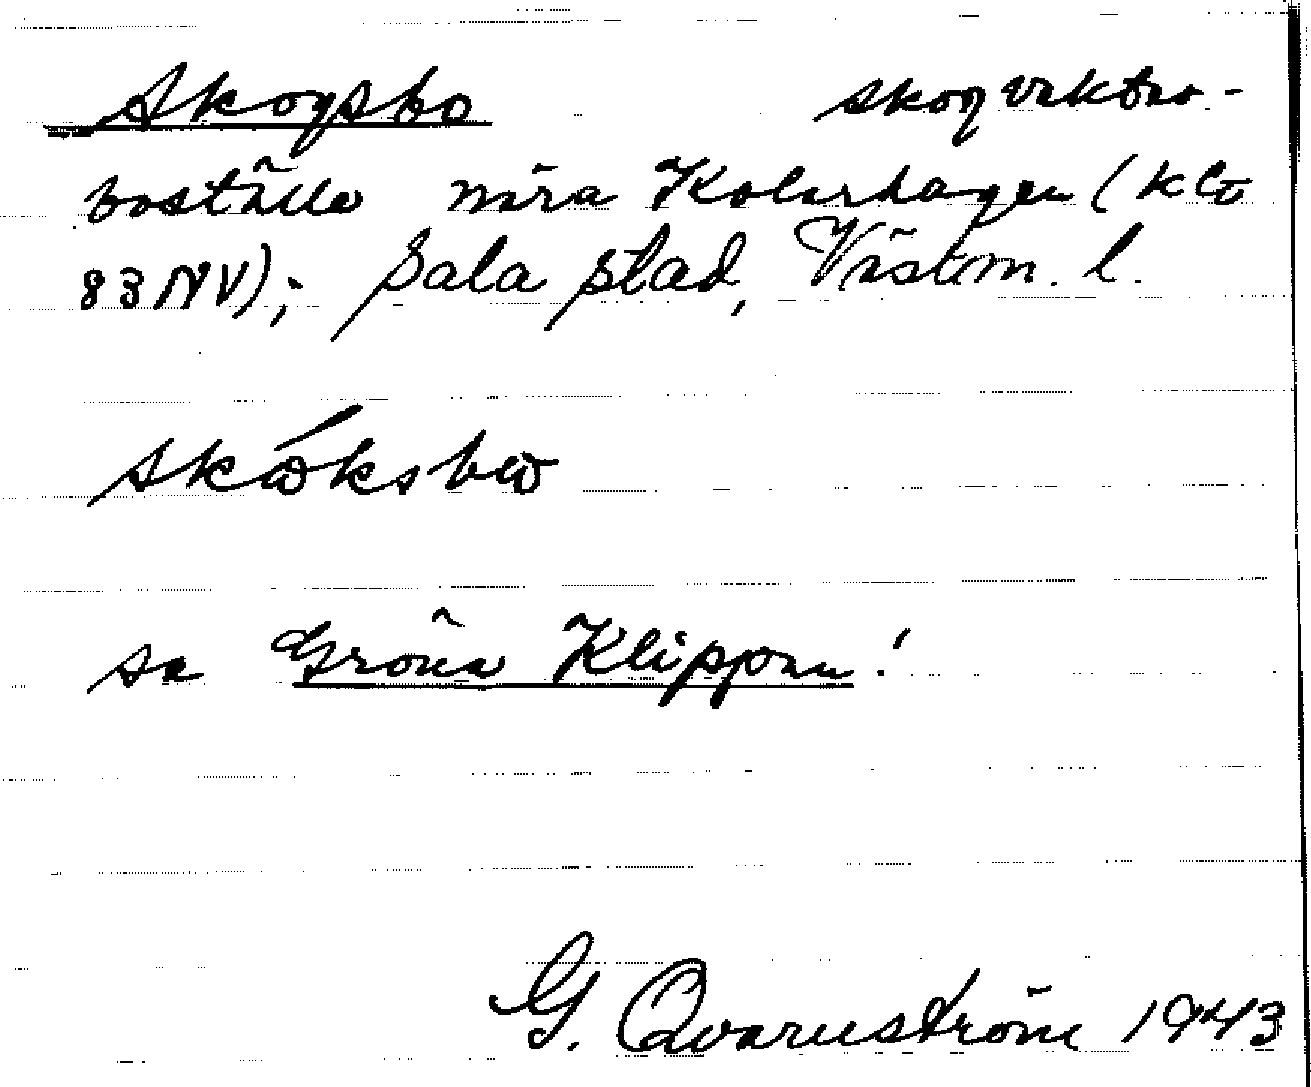 Skogsbo skogvaktar-
boställe nära Kolarhagen (kbl
83 NV); Sala stad, Västm. l.
skẃksbω
se Gröna Klippan!
G. Qvarnström 1943